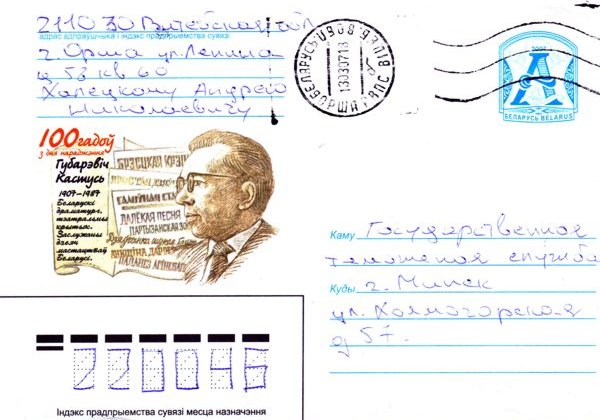 211030 Витебская обл
адрас адпраўшчыка і індэкс прадпрыемства сувязі
г Орша ул. Ленина
д 53 кв 60
Халецкому Андрею
Николаевичу
ОРША
130307
2007
А
БЕЛАРУСЬ BELARUS
100 гадоў
з дня нараджэння
Губарэвіч
Кастусь
1907–1987
Беларускі
драматург,
тэатральны
крытык.
Заслужаны
дзеяч
мастацтваў
Беларусі.
БРЭСЦКАЯ
ДАЛЁКАЯ ПЕСНЯ
ПАРТЫЗАНСКАЯ
Каму Государственная
таможеная служба
Куды г. Минск
ул. Холмогорская
д 57.
220046
Індэкс прадпрыемства сувязі месца назначэння